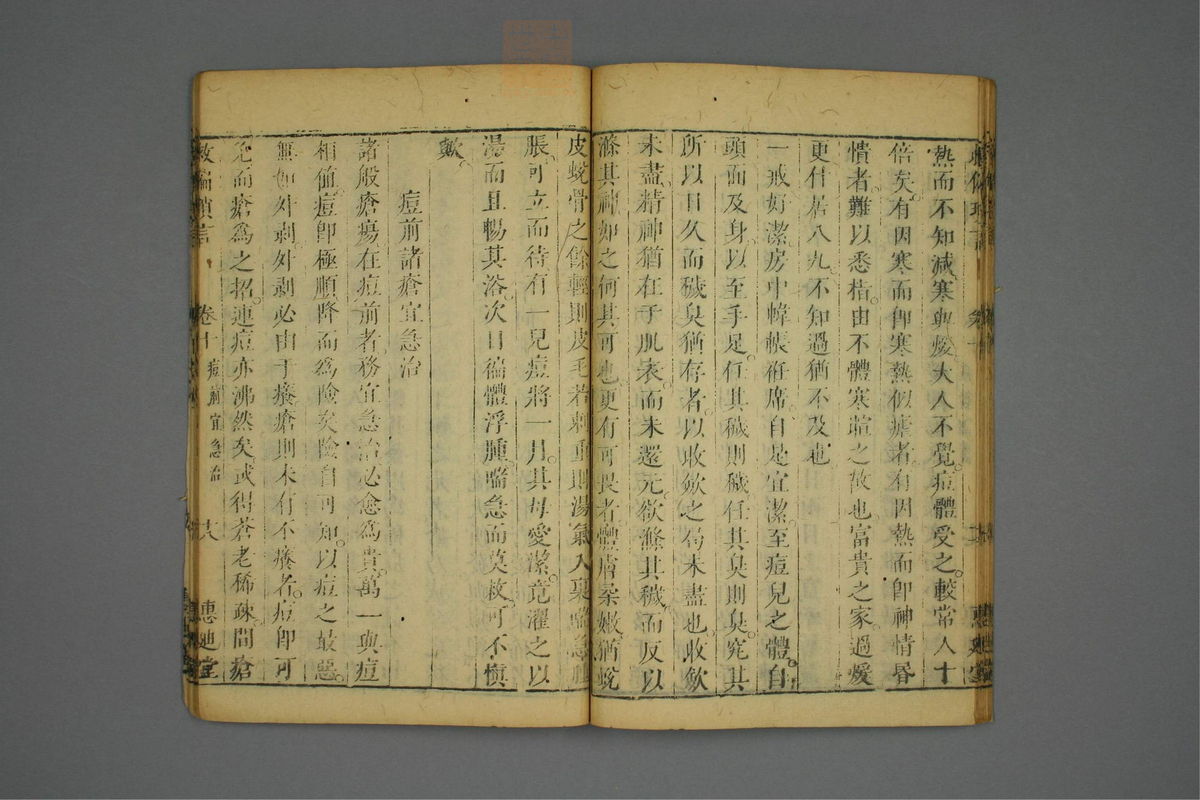 熱而不知減寒與煖大人不覺痘體受之較常人十
倍矣有因寒而卽寒熱似瘧者有因熱而卽神情昏
憒者難以悉指由不體寒暄之故也富貴之家過煖
更什居八九不知過猶不及也
一戒好潔房中幃帳袵席自是宜潔至痘兒之體自
頭面及身以至手足任其穢則穢任其臭則臭究其
所以日久而穢臭猶存者以收斂之局未盡也收斂
未盡精神猶在于肌表而未還元欲滌其穢而反以
滌其神如之何其可也更有可畏者體膚柔嫩猶蛻
皮蛻骨之餘輕則皮毛若刺重則湯氣入裏喘急腫
脹可立而待有一兒痘將一月其母愛潔竟濯之以
湯而且暢其浴次日徧體浮腫喘急而莫救可不慎
歟
痘前諸瘡宜急治
諸般瘡瘍在痘前者務宜急治必愈爲貴萬一與痘
相值痘卽極順降而爲險矣險自可知以痘之最惡
無如外剥外剥必由于癢瘡則未有不癢者痘卽可
免而瘡爲之招連痘亦沸然矣或得蒼老稀疎間瘡
救偏瑣言 卷十 痘前宜急治 十八 惠迪堂